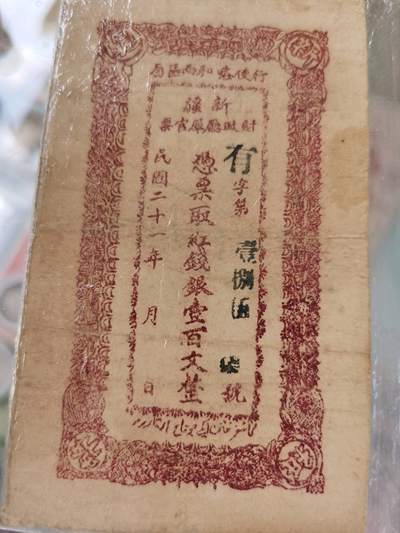 行使喀和兩區
新疆
財政廳官票
有字第壹捌伍號
憑票取紅錢銀壹百文整
民國二十一年 月 日